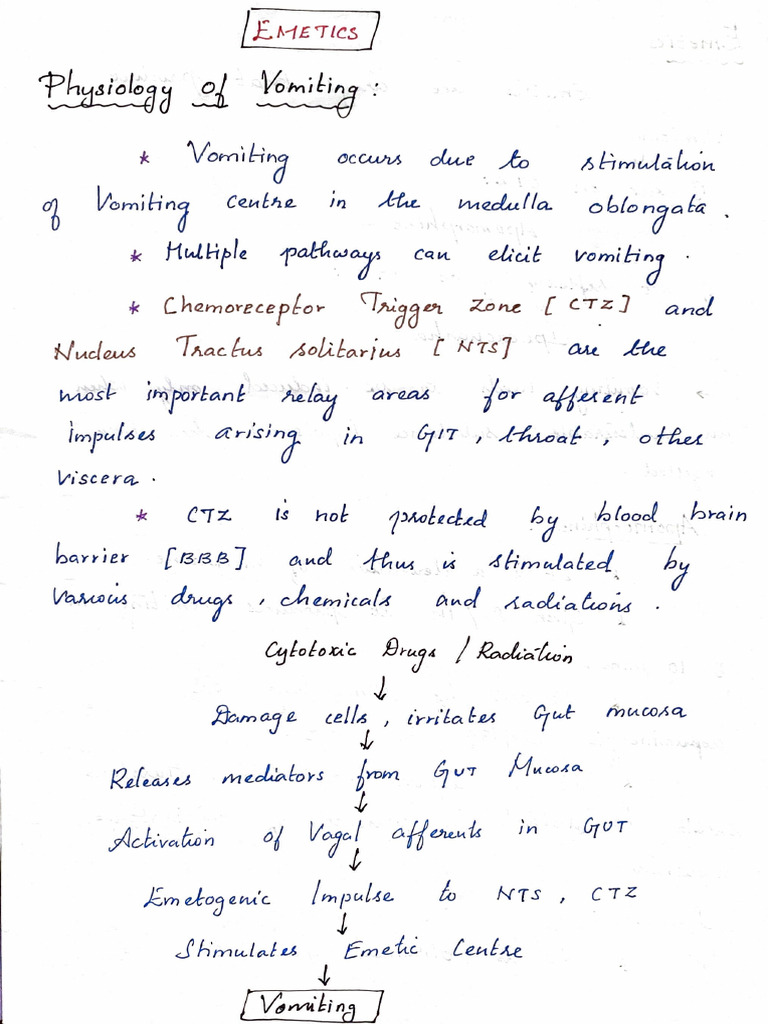 EMETICS
Physiology of Vomiting :
* Vomiting occurs due to stimulation
of Vomiting centre in the medulla oblongata .
* Multiple pathways can elicit vomiting .
* Chemoreceptor Trigger Zone [ CTZ ] and
Nucleus Tractus solitarius [ NTS ] are the
most important relay areas for afferent
impulses arising in GIT , throat , other
viscera .
* CTZ is not protected by blood brain
barrier [ BBB ] and thus is stimulated by
various drugs , chemicals and radiations .
Cytotoxic Drugs / Radiation
↓
Damage cells , irritates Gut mucosa
↓
Releases mediators from GUT Mucosa
↓
Activation of Vagal afferents in GUT
↓
Emetogenic Impulse to NTS , CTZ
↓
Stimulates Emetic Centre
↓
Vomiting